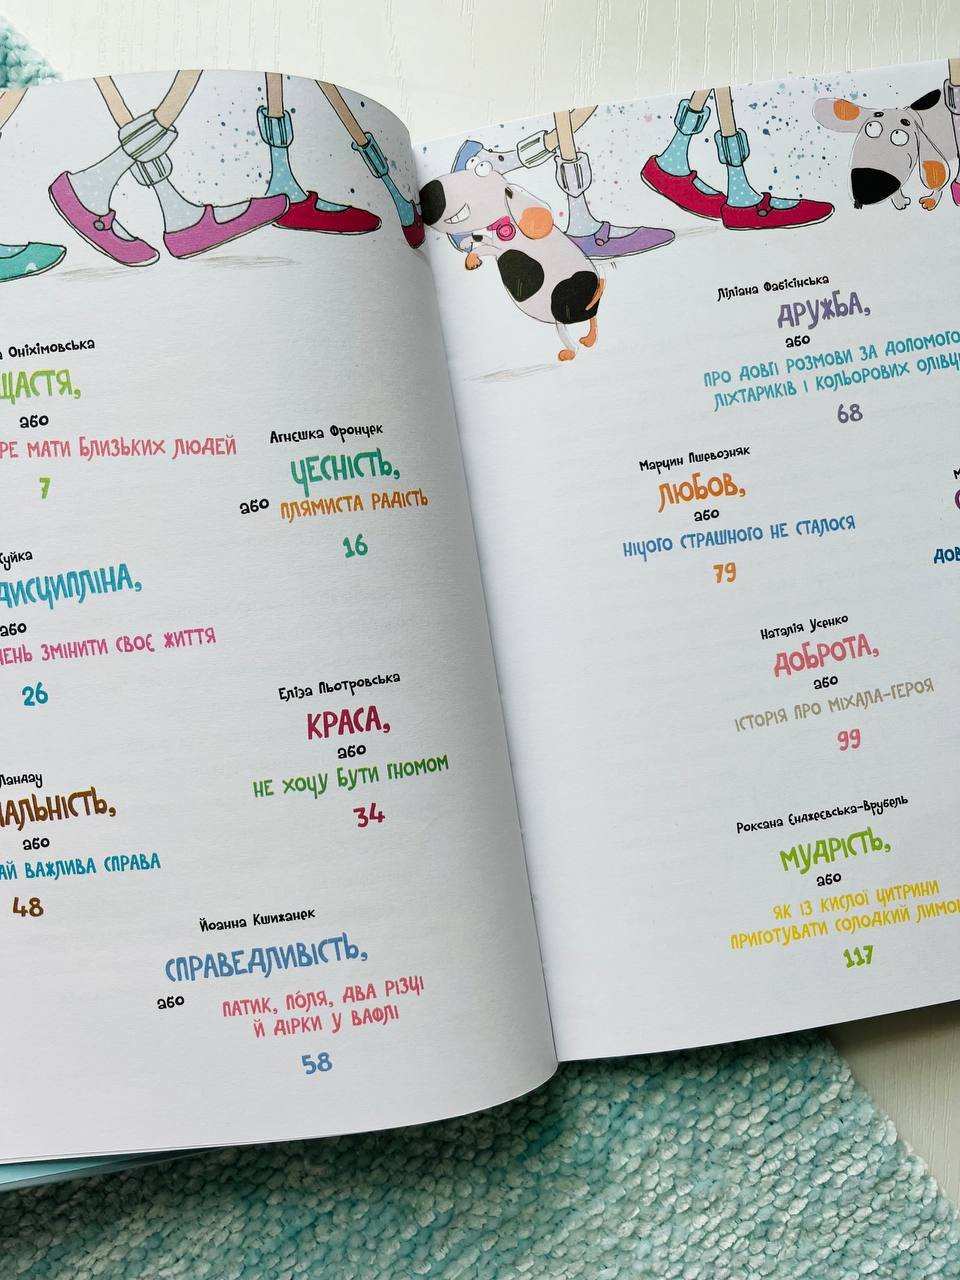 Оніхімовська
ЩАСТЯ,
або
МАТИ БЛИЗЬКИХ ЛЮДЕЙ
7
Агнєшка Фрончек
ЧЕСНІСТЬ,
або ПЛЯМИСТА РАДІСТЬ
16
ДИСЦИПЛІНА,
або
ЗМІНИТИ СВОЄ ЖИТТЯ
26
Еліза Пьотровська
КРАСА,
або
НЕ ХОЧУ БУТИ ГНОМОМ
34
Ландау
або
ВАЖЛИВА СПРАВА
48
Йоанна Кшижанек
СПРАВЕДЛИВІСТЬ,
або ПАТИК, ПО́ЛЯ, ДВА РІЗЦІ
Й ДІРКИ У ВАФЛІ
58
Ліліана Фабісінська
ДРУЖБА,
або
ПРО ДОВГІ РОЗМОВИ ЗА
ЛІХТАРИКІВ І КОЛЬОРОВИХ
68
Марцин Пшевозняк
ЛЮБОВ,
або
НІЧОГО СТРАШНОГО НЕ СТАЛОСЯ
79
Наталія Усенко
ДОБРОТА,
або
ІСТОРІЯ ПРО МІХАЛА-ГЕРОЯ
99
Роксана Єнджеєвська-Врубель
МУДРІСТЬ,
або
ЯК ІЗ КИСЛОЇ ЦИТРИНИ
ПРИГОТУВАТИ СОЛОДКИЙ
117